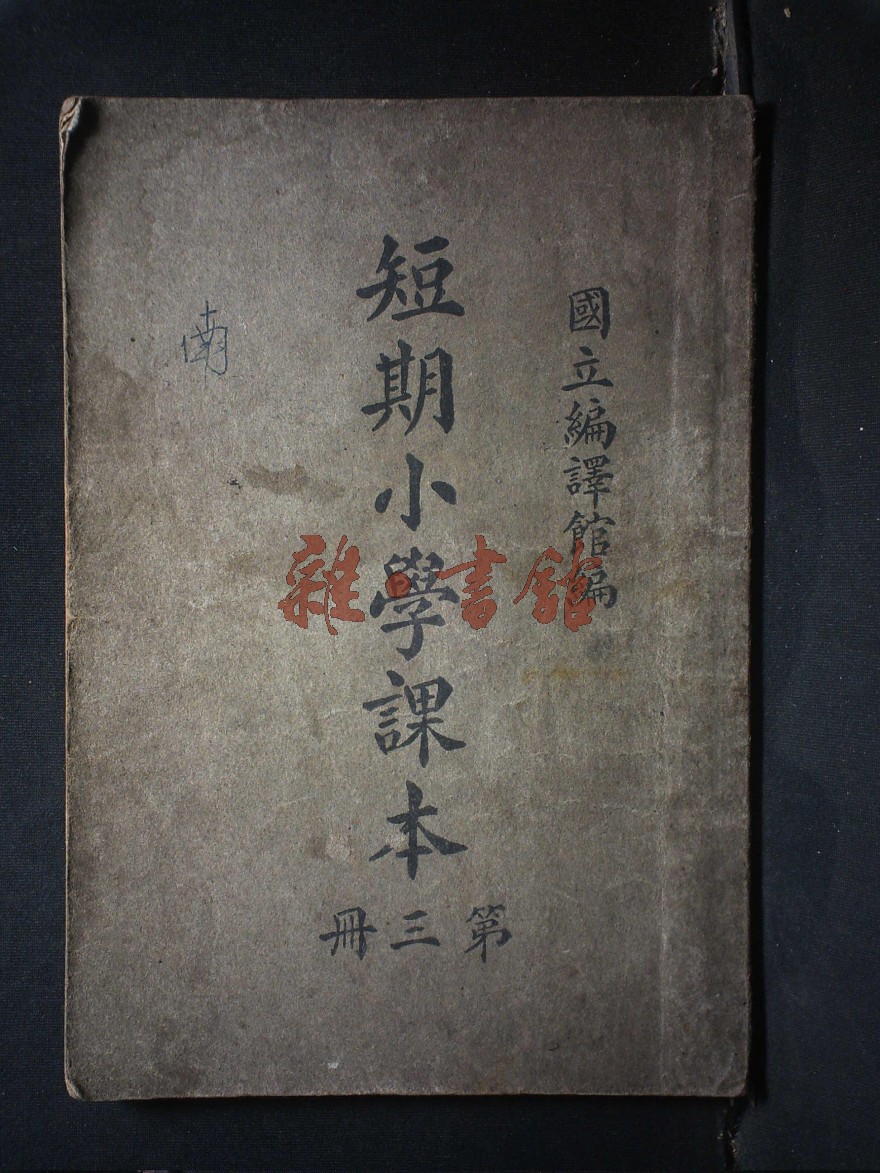 國立編譯館編
短期小學課本
第三冊
雜書館